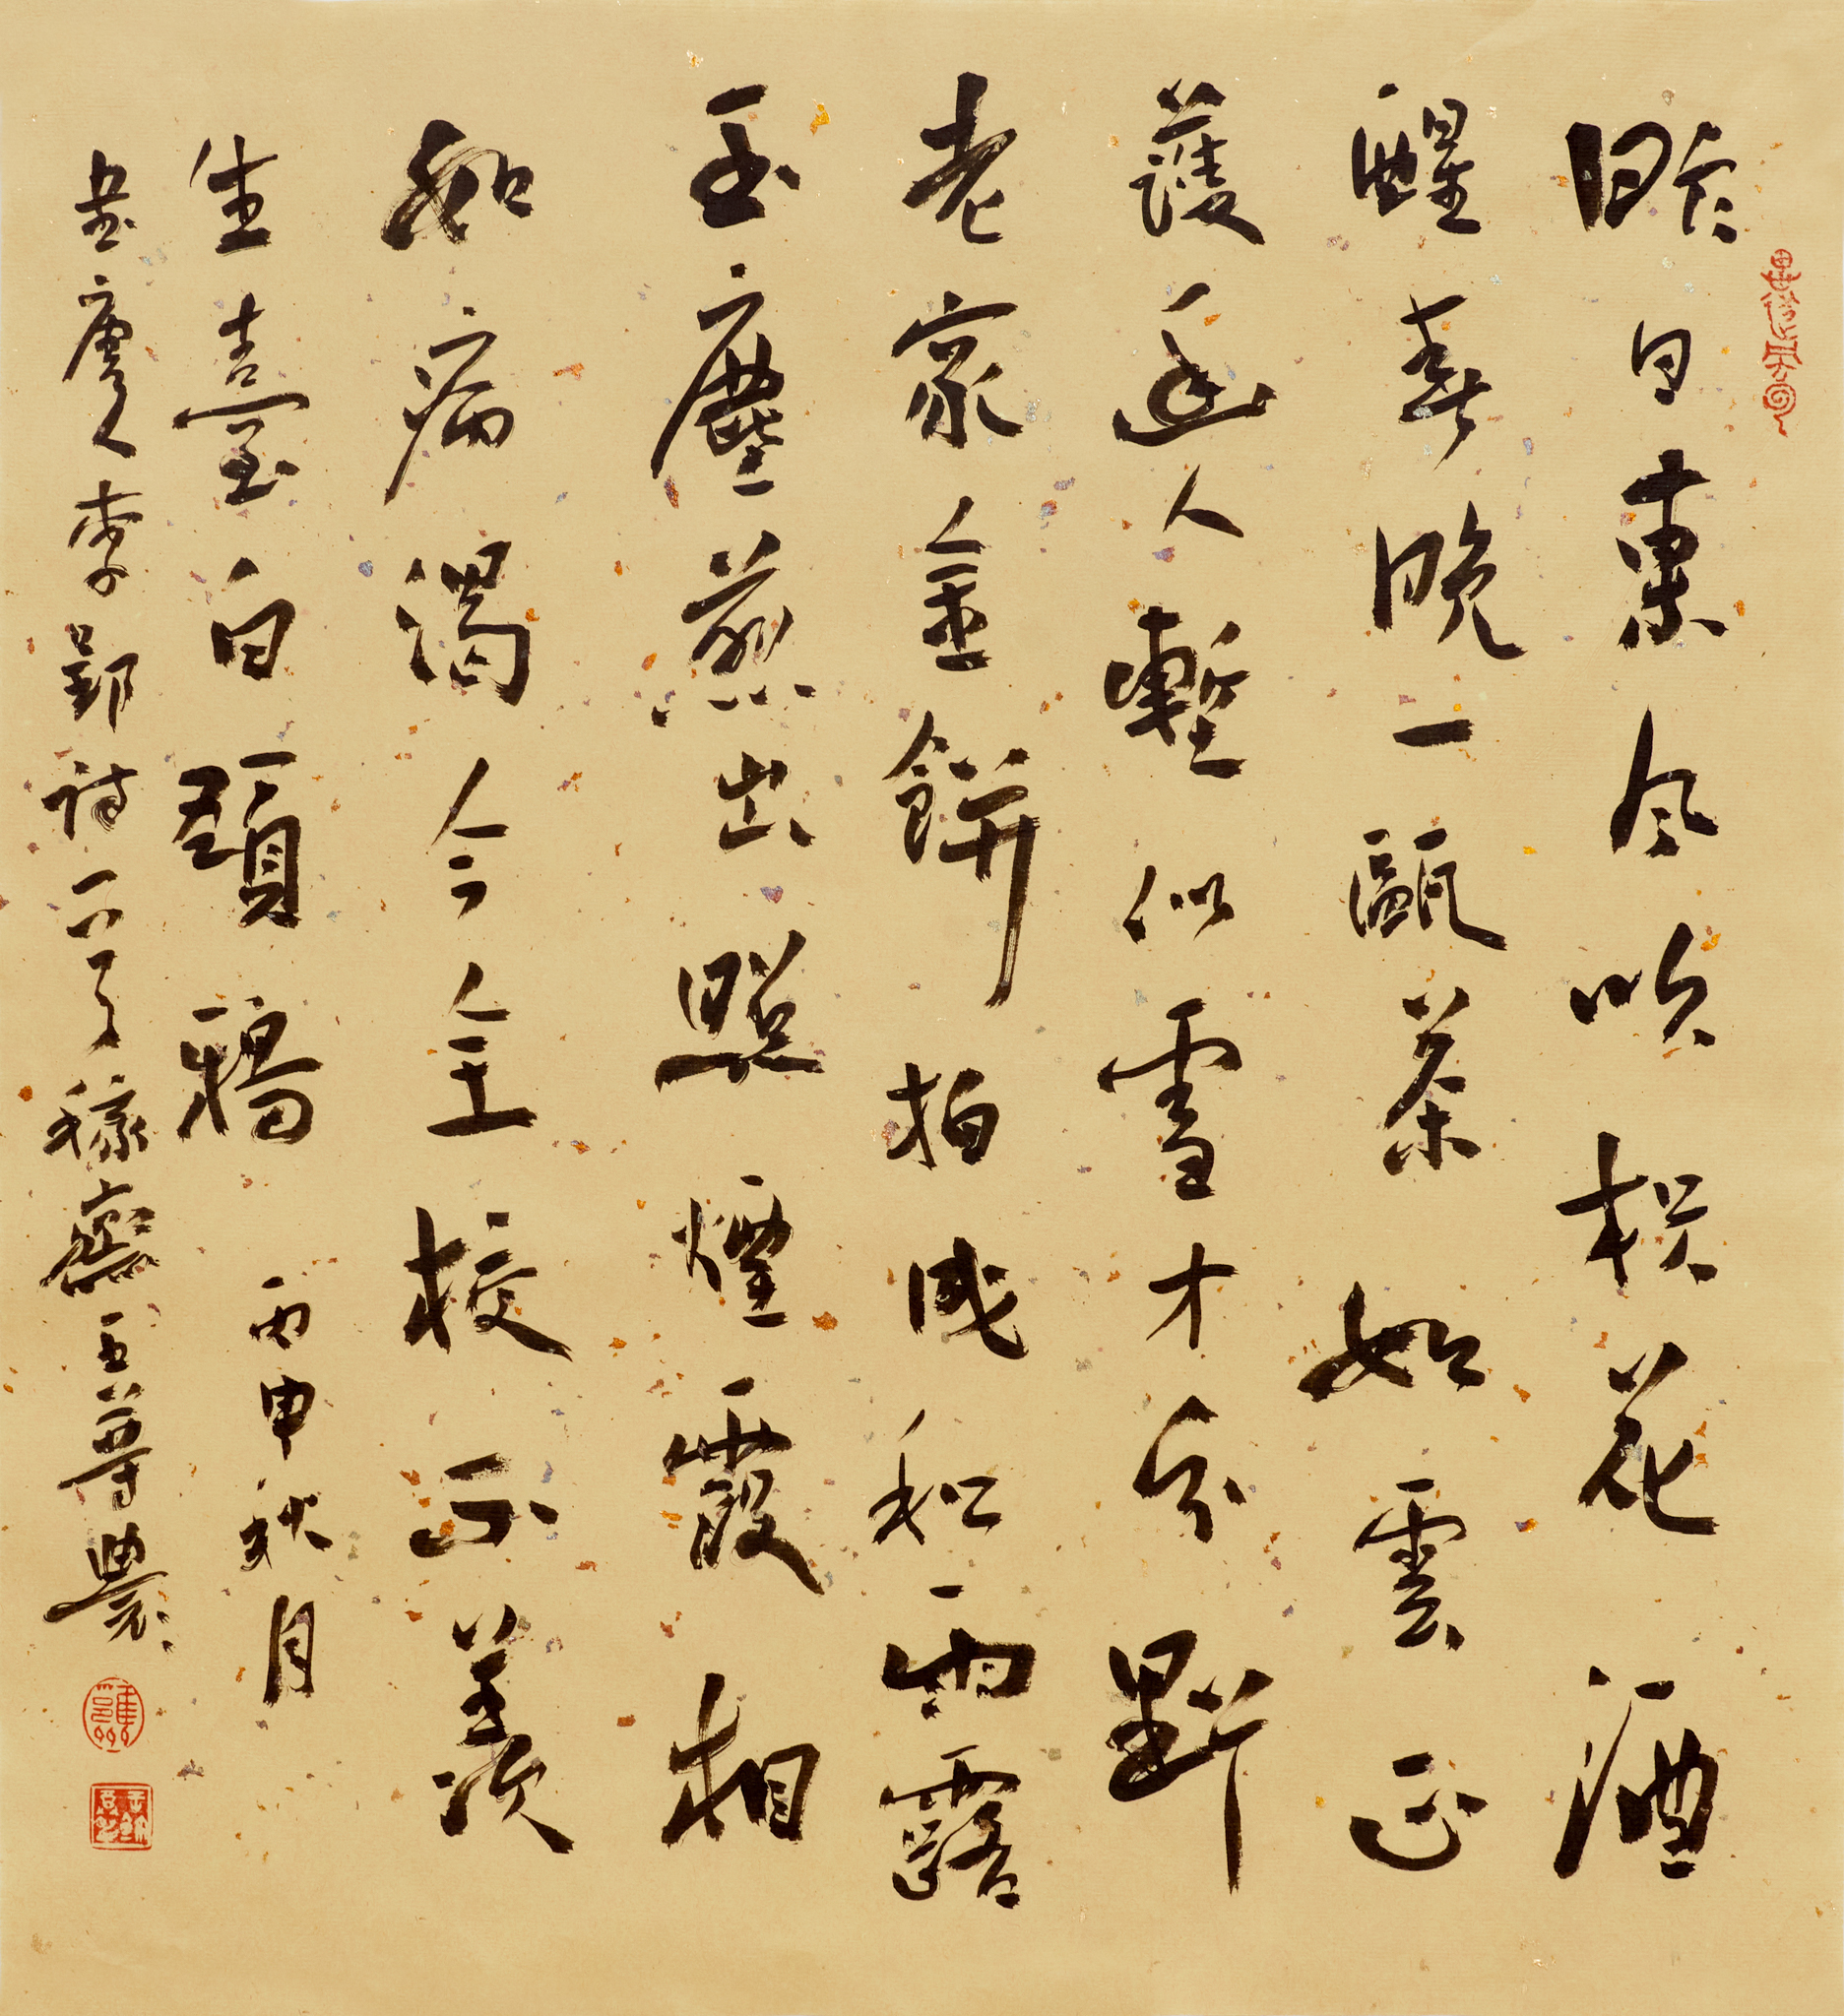 昨日東風吹枳花酒
醒春晚一甌茶如雲正
護幽人塹似雪才分野
老家金餅拍成和雨露
玉塵煎出照煙霞相
如病渴今全校不羨
生臺白頸鴉 丙申秋月
書唐人李郢詩一首稼齋王尊農
雍州